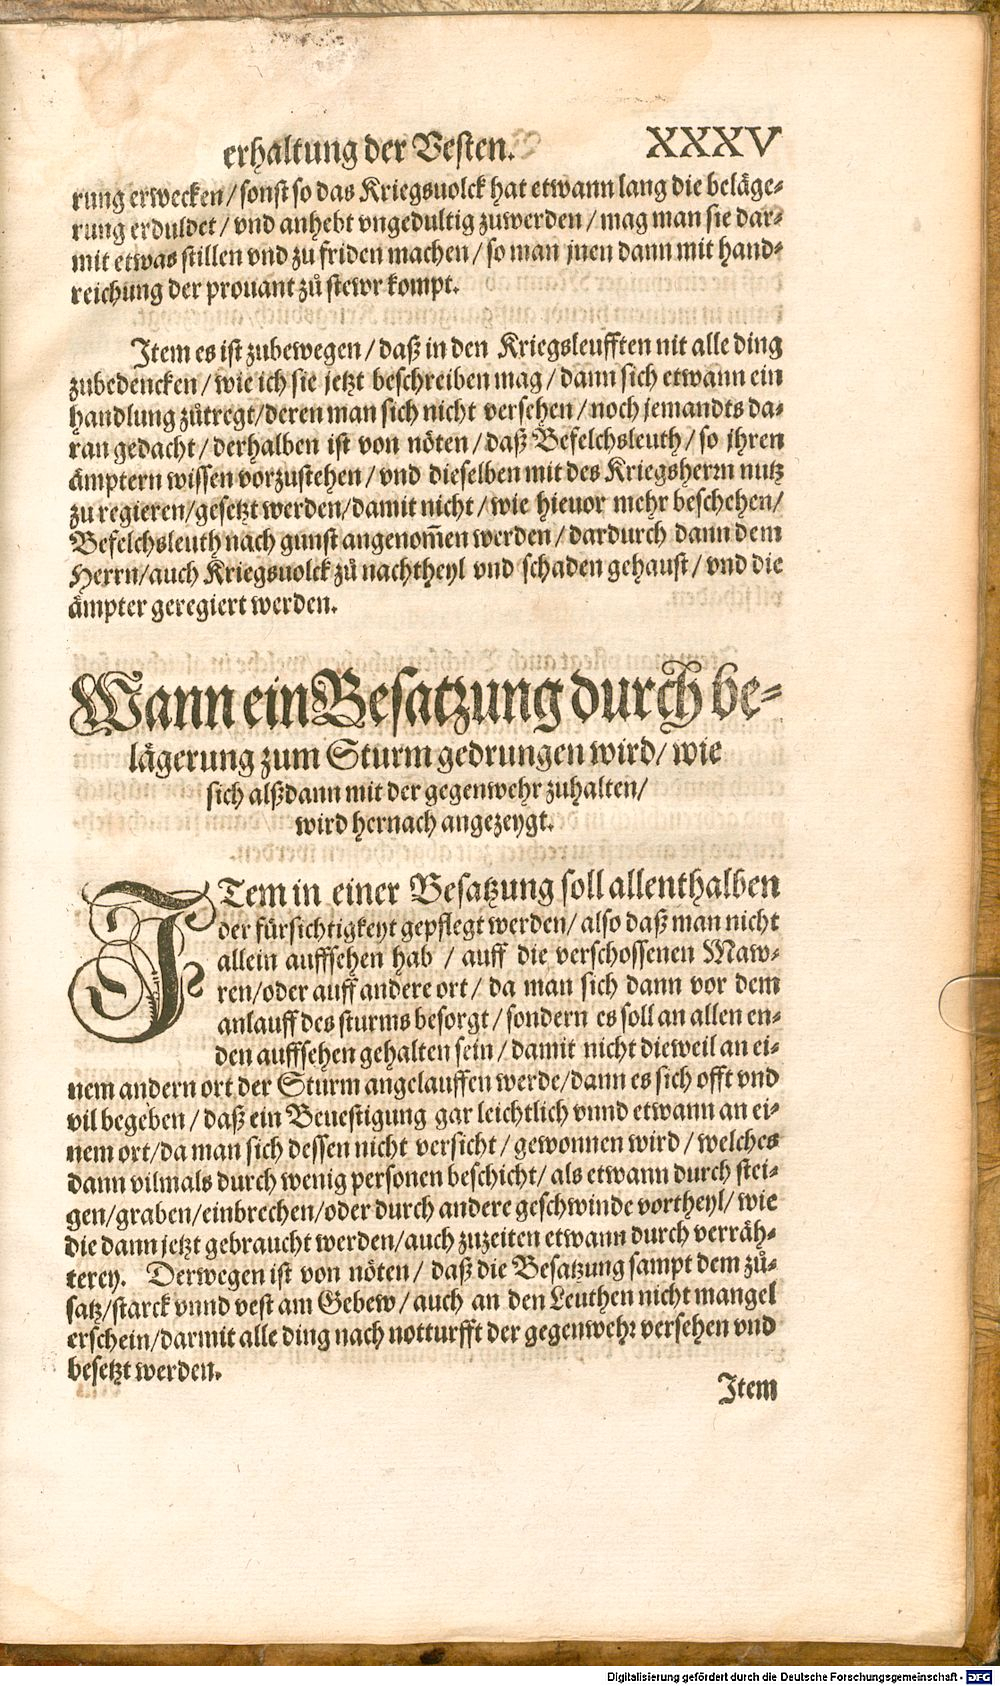 erhaltung der Vesten. XXXV
rung erwecken / sonst so das Kriegsuolck hat etwann lang die beläge-
rung erduldet / vnd anhebt vngedultig zuwerden / mag man sie dar-
mit etwas stillen vnd zu friden machen / so man jnen dann mit hand-
reichung der prouant zů stewr kompt.
Item es ist zubewegen / daß in den Kriegsleufften nit alle ding
zubedencken / wie ich sie jetzt beschreiben mag / dann sich etwann ein
handlung zůtregt/deren man sich nicht versehen / noch jemandts da-
ran gedacht / derhalben ist von nöten / daß Befelchsleuth / so jhren
ämptern wissen vorzustehen / vnd dieselben mit des Kriegsherrn nutz
zu regieren/gesetzt werden/damit nicht / wie hieuor mehr beschehen/
Befelchsleuth nach gunst angenom̃en werden / dardurch dann dem
Herrn/auch Kriegsuolck zů nachtheyl vnd schaden gehaust / vnd die
ämpter geregiert werden.
Wann ein Besatzung durch be-
lägerung zum Sturm gedrungen wird/ wie
sich alßdann mit der gegenwehr zuhalten/
wird hernach angezeygt.
ITem in einer Besatzung soll allenthalben
der fürsichtigkeyt gepflegt werden/ also daß man nicht
allein auffsehen hab / auff die verschossenen Maw-
ren/oder auff andere ort / da man sich dann vor dem
anlauff des sturms besorgt / sondern es soll an allen en-
den auffsehen gehalten sein / damit nicht dieweil an ei-
nem andern ort der Sturm angelauffen werde/dann es sich offt vnd
vil begeben / daß ein Beuestigung gar leichtlich vnnd etwann an ei-
nem ort/da man sich dessen nicht versicht / gewonnen wird / welches
dann vilmals durch wenig personen beschicht/ als etwann durch stei-
gen/graben/einbrechen/oder durch andere geschwinde vortheyl/ wie
die dann jetzt gebraucht werden/auch zuzeiten etwann durch verräh-
terey. Derwegen ist von nöten / daß die Besatzung sampt dem zů-
satz/starck vnnd vest am Gebew / auch an den Leuthen nicht mangel
erschein/darmit alle ding nach notturfft der gegenwehr versehen vnd
besetzt werden.
Item
Digitalisierung gefördert durch die Deutsche Forschungsgemeinschaft - DFG